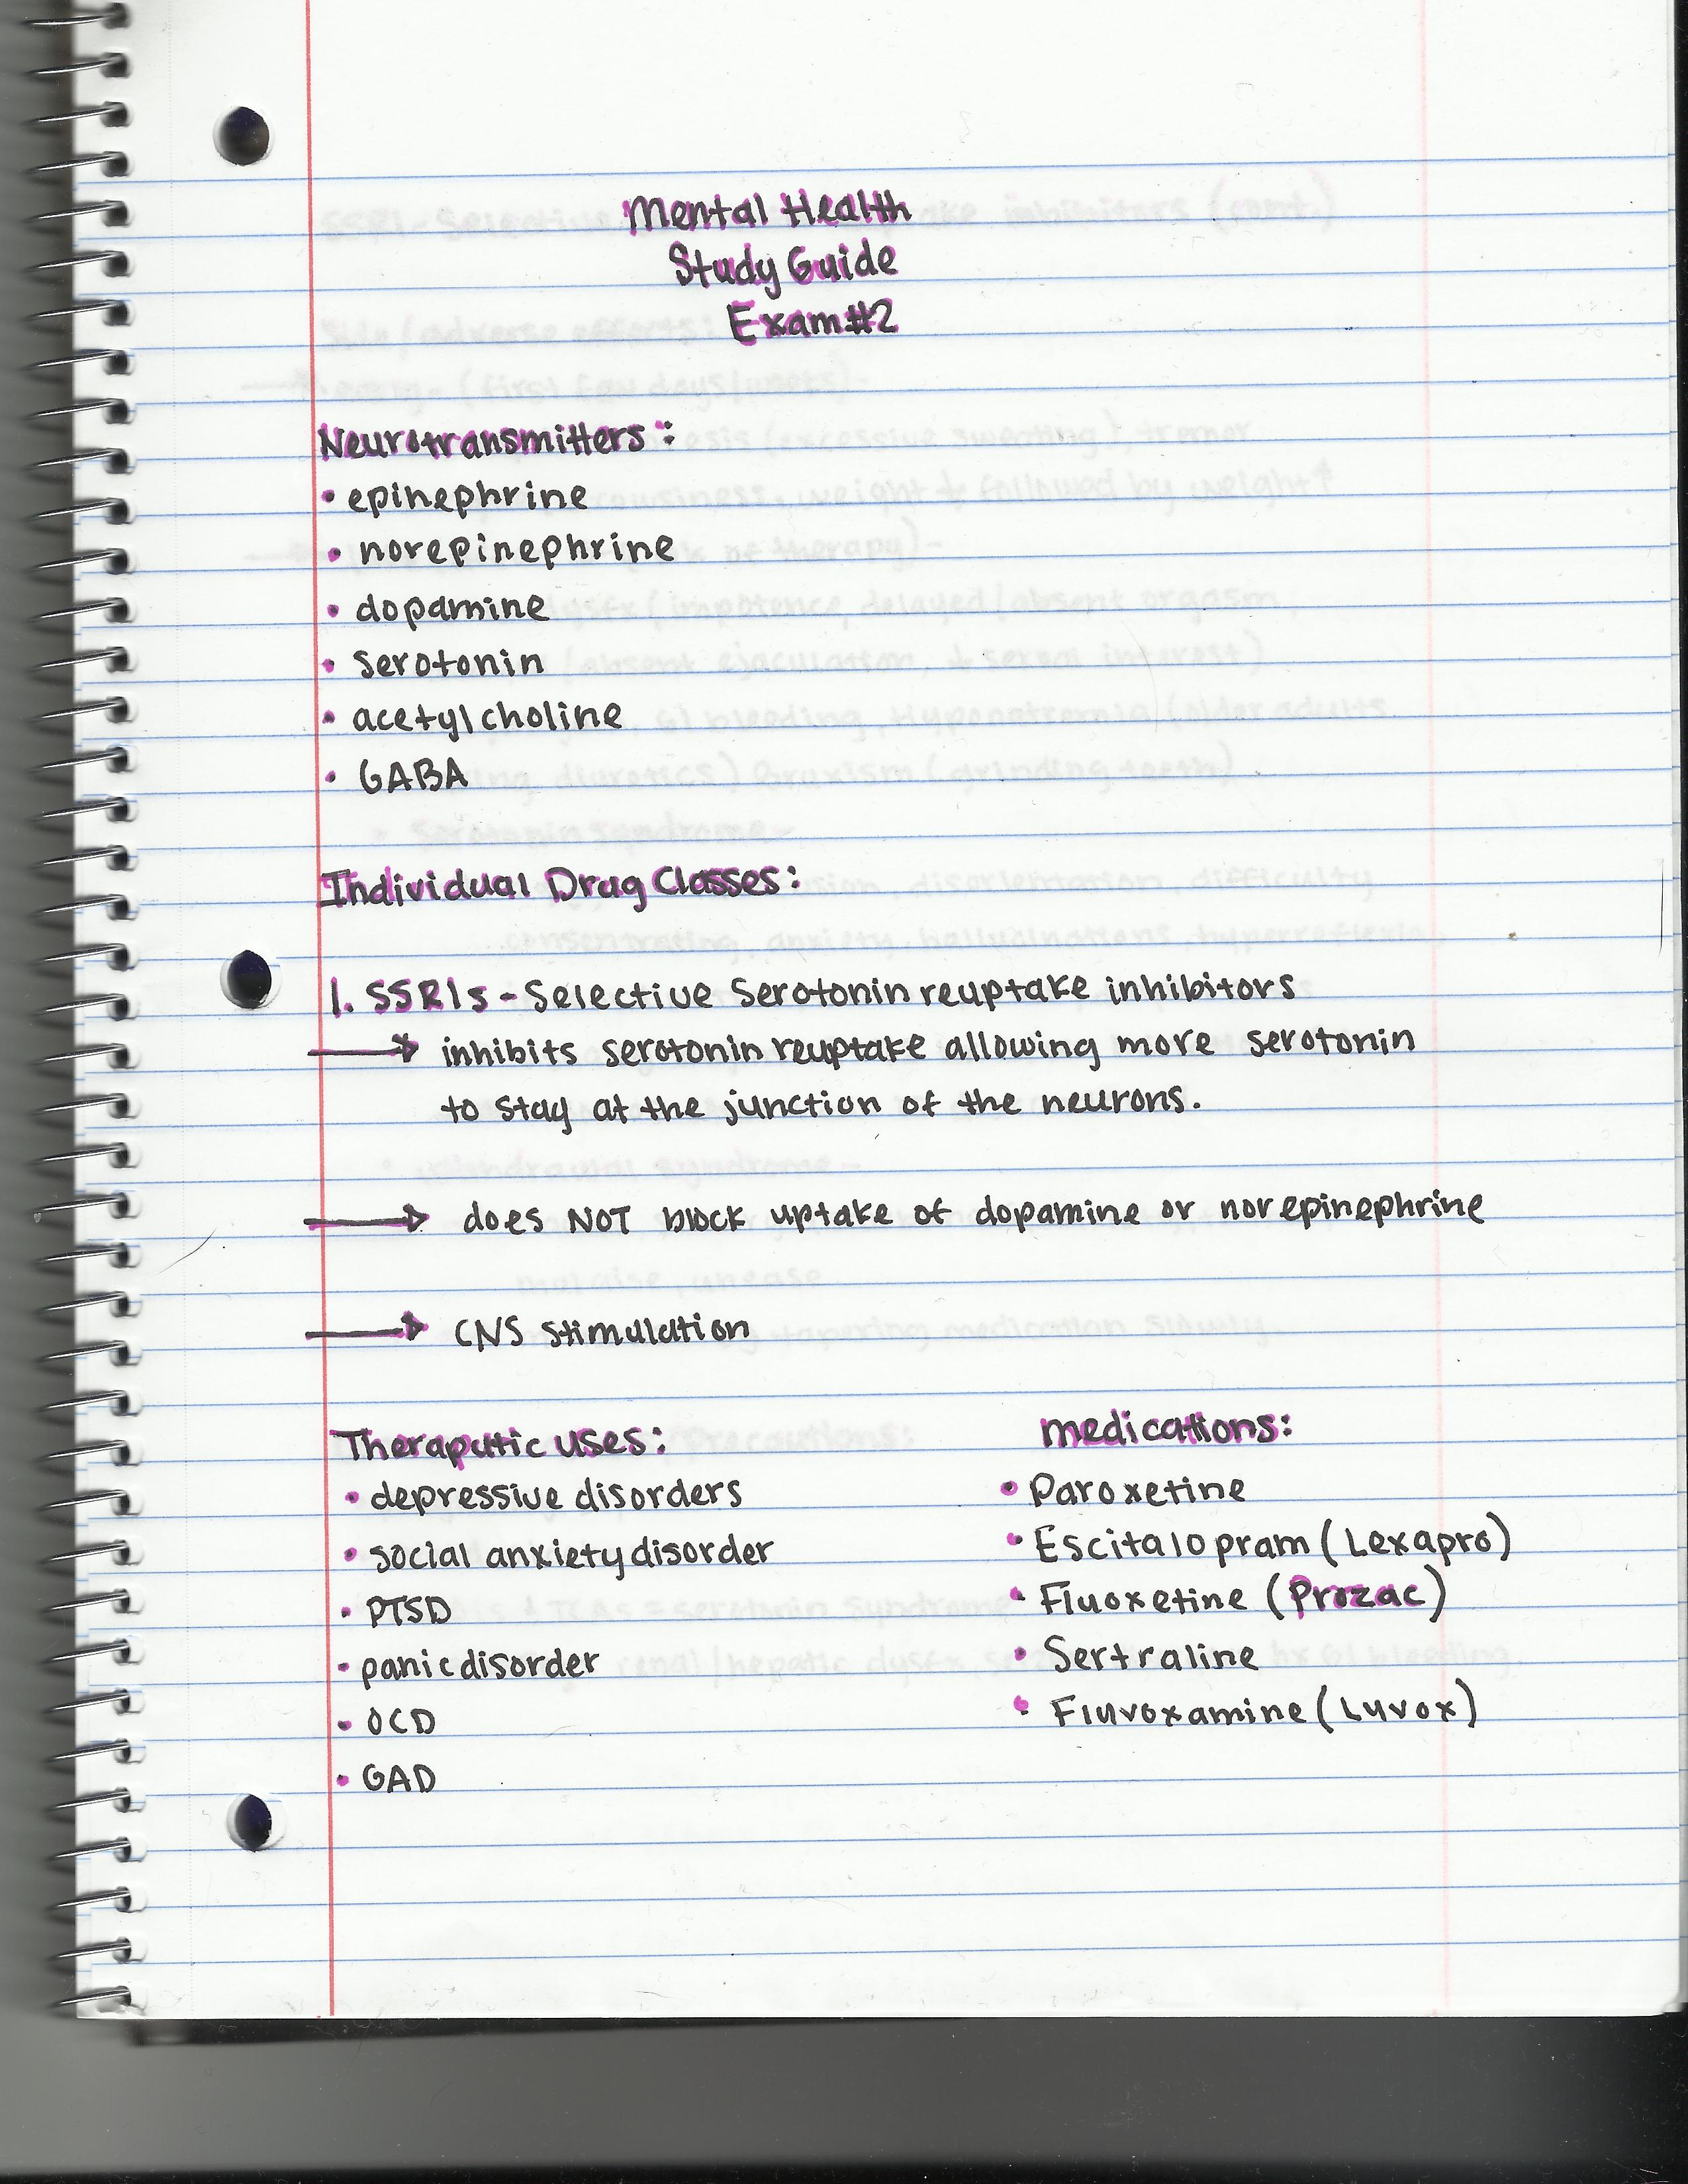 Mental Health
Study Guide
Exam #2
Neurotransmitters:
• epinephrine
• norepinephrine
• dopamine
• serotonin
• acetylcholine
• GABA
Individual Drug Classes:
1. SSRIs - Selective Serotonin reuptake inhibitors
→ inhibits serotonin reuptake allowing more serotonin
to stay at the junction of the neurons.
→ does NOT block uptake of dopamine or norepinephrine
→ CNS stimulation
Theraputic uses:
• depressive disorders
• social anxiety disorder
• PTSD
• panic disorder
• OCD
• GAD
medications:
• Paroxetine
• Escitalopram (Lexapro)
• Fluoxetine (Prozac)
• Sertraline
• Fluvoxamine (Luvox)